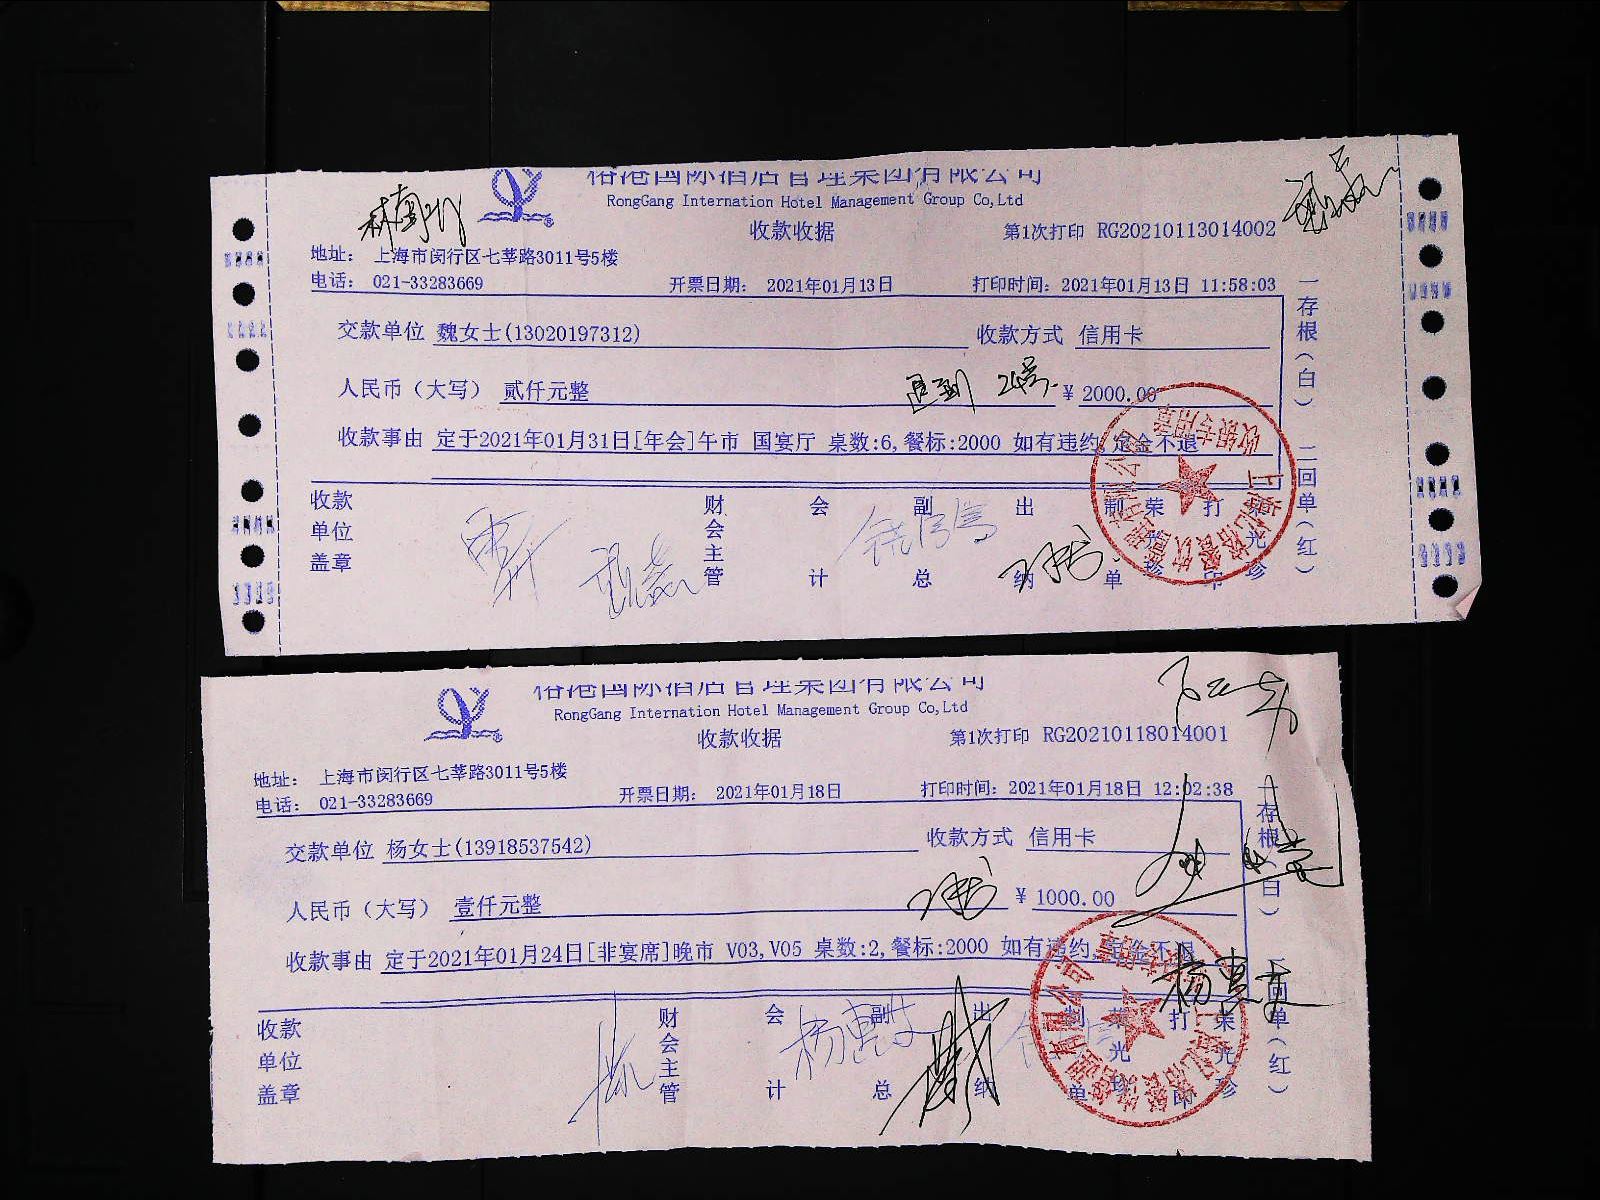 裕港国际酒店管理集团有限公司
RongGang Internation Hotel Management Group Co,Ltd
收款收据 第1次打印 RG20210113014002
地址: 上海市闵行区七莘路3011号5楼
电话: 021-33283669 开票日期: 2021年01月13日 打印时间: 2021年01月13日 11:58:03
交款单位 魏女士(13020197312) 收款方式 信用卡
人民币(大写) 贰仟元整 ¥ 2000.00
收款事由 定于2021年01月31日[年会]午市 国宴厅 桌数:6,餐标:2000 如有违约,定金不退
收款单位盖章 财会主管 会计 副总 出纳 制单 荣光珍 打印 荣光珍
一存根(白) 二回单(红)
裕港国际酒店管理集团有限公司
RongGang Internation Hotel Management Group Co,Ltd
收款收据 第1次打印 RG20210118014001
地址: 上海市闵行区七莘路3011号5楼
电话: 021-33283669 开票日期: 2021年01月18日 打印时间: 2021年01月18日 12:02:38
交款单位 杨女士(13918537542) 收款方式 信用卡
人民币(大写) 壹仟元整 ¥ 1000.00
收款事由 定于2021年01月24日[非宴席]晚市 V03,V05 桌数:2,餐标:2000 如有违约,定金不退
收款单位盖章 财会主管 会计 副总 出纳 制单 荣光珍 打印 荣光珍
一存根(白) 二回单(红)